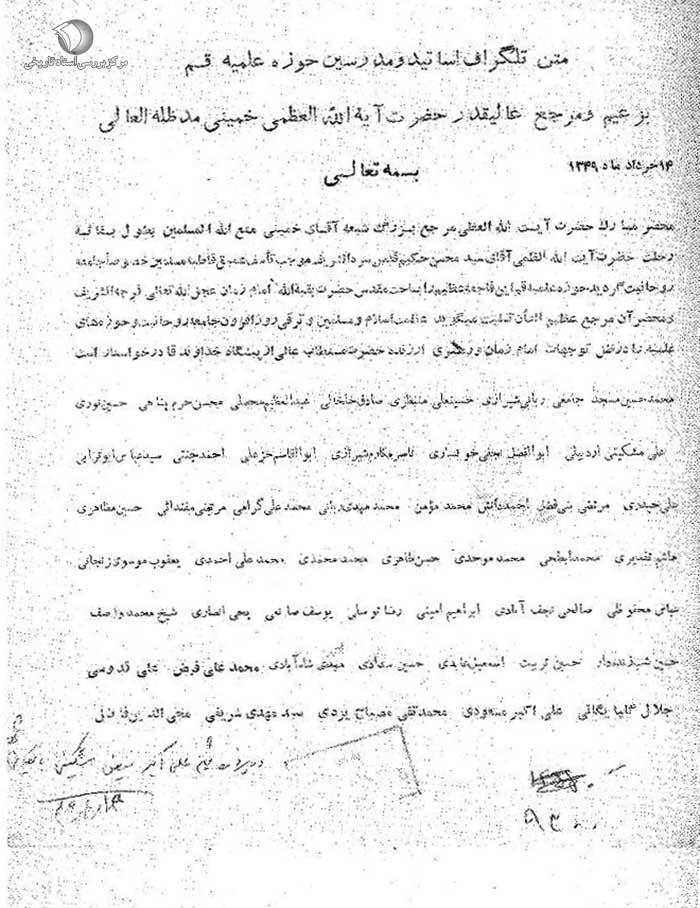 مرکز بررسی اسناد تاریخی
متن تلگراف اساتید و مدرسین حوزه علمیه قم
بزعیم و مرجع عالیقدر حضرت آیة الله العظمی خمینی مدظله العالی
بسمه تعالی
۱۴ خرداد ماه ۱۳۴۹
محضر مبارک حضرت آیت الله العظمی مرجع بزرگ شیعه آقای خمینی متع الله المسلمین بطول بقائه
رحلت حضرت آیت الله العظمی آقای سید محسن حکیم قدس سره الشریف موجب تأسف عمیق قاطبه مسلمین خصوصا جامعه
روحانیت گردید حوزه علمیه قم این فاجعه عظیم را بساحت مقدس حضرت بقیة الله امام زمان عجل الله تعالی فرجه الشریف
و محضر آن مرجع عظیم الشأن تسلیت میگوید عظمت اسلام و مسلمین و ترقی روز افزون جامعه روحانیت و حوزه های
علمیه را در ظل توجهات امام زمان و رهبری ارزنده حضرت مستطاب عالی از پیشگاه خداوند قادر خواستار است
محمد حسین مسجد جامعی ربانی شیرازی حسینعلی منتظری صادق خلخالی عبدالعظیم محصلی محسن حرم پناهی حسین نوری
علی مشکینی اردبیلی ابوالفضل نجفی خونساری ناصر مکارم شیرازی ابوالقاسم خزعلی احمد جنتی سید عباس ابوترابی
علی حیدری مرتضی بنی فضل احمد دانش محمد مؤمن محمد مهدی ربانی محمد علی گرامی مرتضی مقتدائی حسین مظاهری
هاشم تقدیری محمد ابطحی محمد موحدی حسن طاهری محمد محمدی محمد علی احمدی یعقوب موسوی زنجانی
عباس محفوظی صالحی نجف آبادی ابراهیم امینی رضا توسلی یوسف صانعی یحیی انصاری شیخ محمد واصف
حسین شب زنده دار حسین تربت اسمعیل عابدی حسین سعادی مهدی شاه آبادی محمد علی فرض علی قدوسی
جلال گلپایگانی علی اکبر مسعودی محمد تقی مصباح یزدی سید مهدی شریفی محی الدین فاضلی
علی اکبر فیض مشکینی